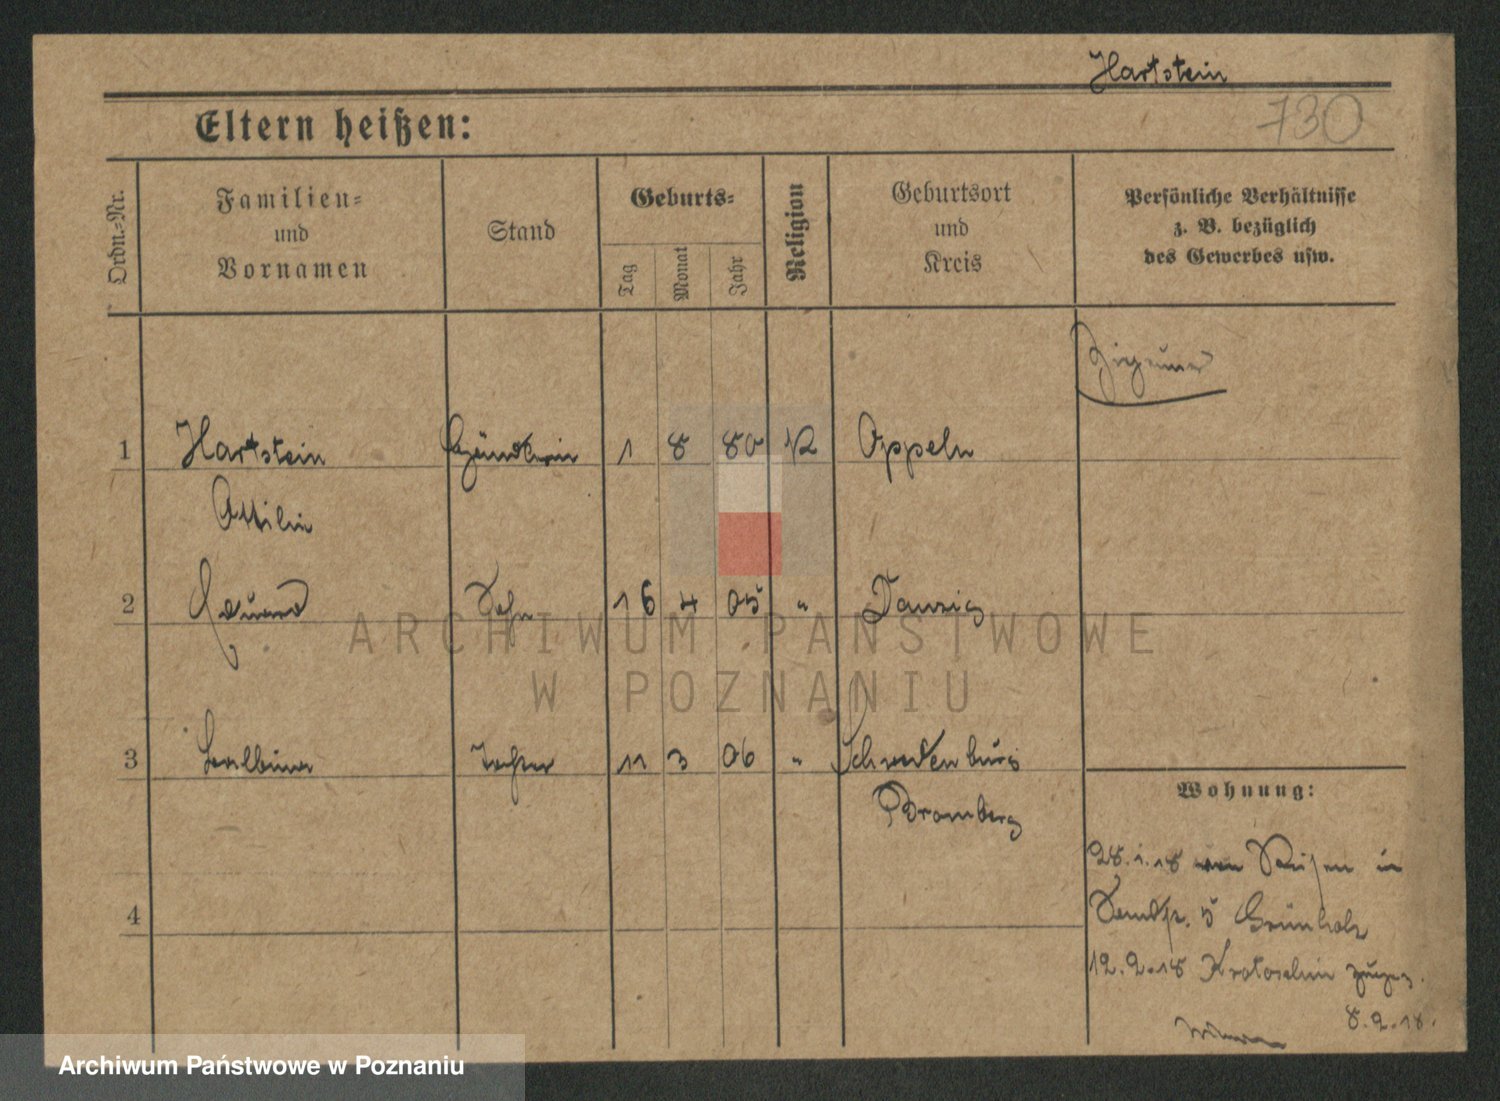 Hartstein
730
Eltern heißen:
Ordn.-Nr.
Familien-
und
Vornamen
Stand
Geburts-
Tag
Monat
Jahr
Religion
Geburtsort
und
Kreis
Persönliche Verhältnisse
z. B. bezüglich
des Gewerbes usw.
Zigeuner
1 Hartstein Händlerin 1 8 80 K Oppeln
Ottilie
2 Eduard Sohn 16 4 05 " Danzig
ARCHIWUM PAŃSTWOWE
W POZNANIU
3 Tochter 11 3 06 " Schwedenburg
Bromberg
Wohnung:
28.1.18 von Reisen in
5 Grünholz
4
12.2.18 Krotoschin
8.2.18.
Archiwum Państwowe w Poznaniu